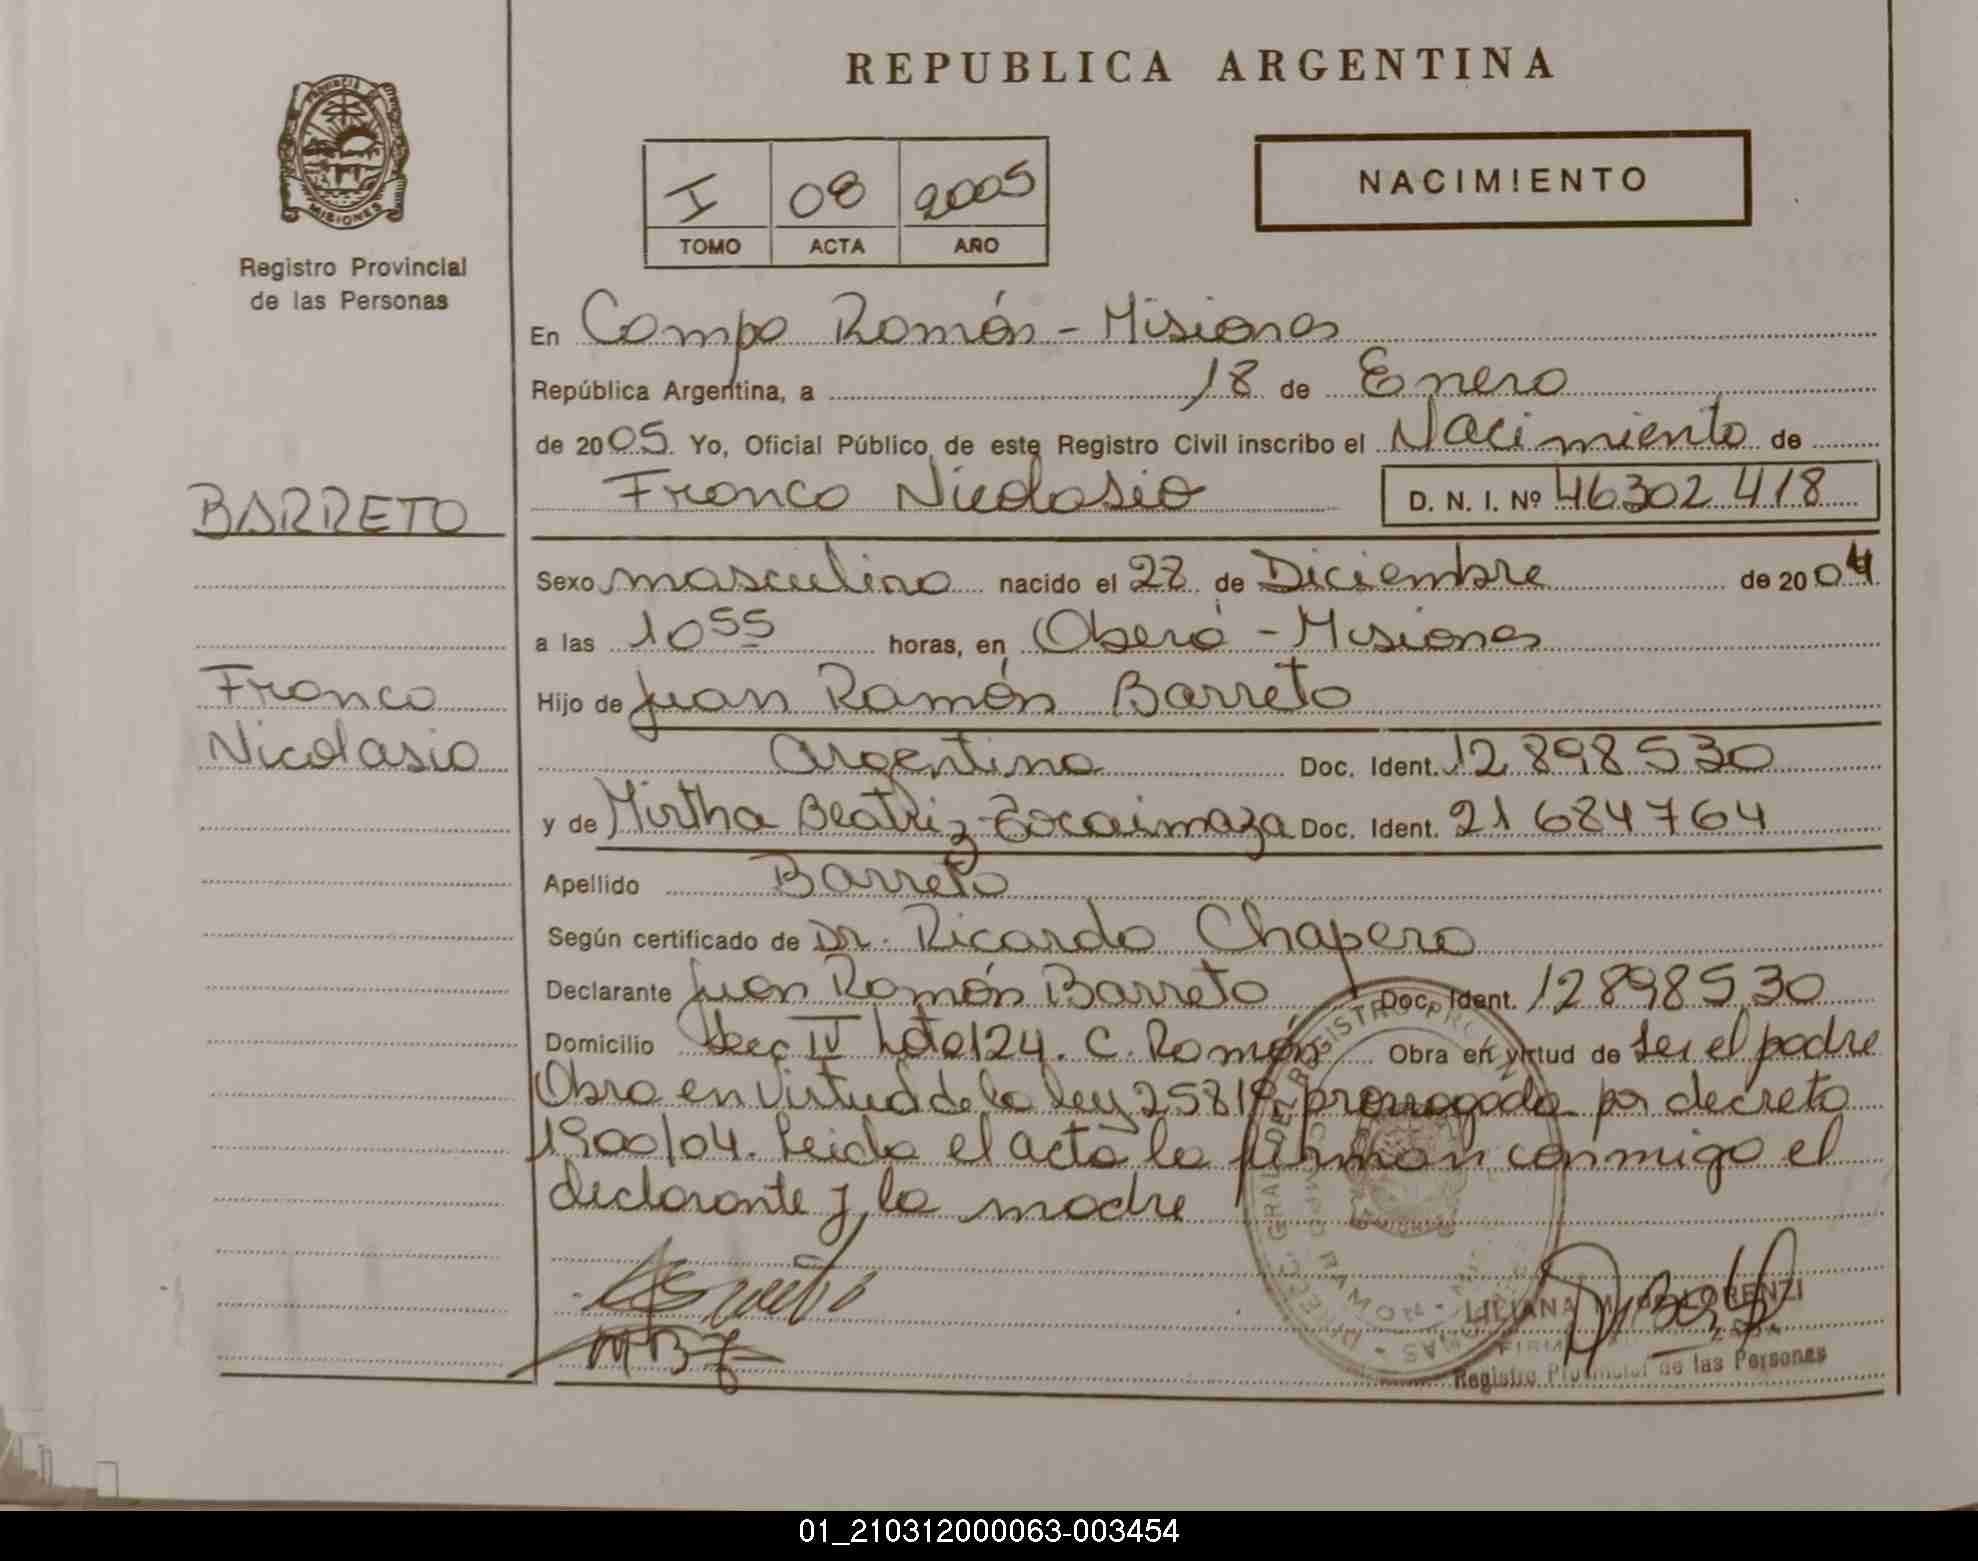 REPUBLICA ARGENTINA
I 08 2005
TOMO ACTA AÑO
NACIMIENTO
Registro Provincial
de las Personas
En Campo Ramón - Misiones
República Argentina, a 18 de Enero
de 2005. Yo, Oficial Público de este Registro Civil inscribo el Nacimiento de
Franco Nicolasio D. N. I. Nº 46302418
BARRETO
Sexo masculino nacido el 28 de Diciembre de 2004
a las 10 55 horas, en Oberá - Misiones
Hijo de Juan Ramón Barreto
Franco
Nicolasio
Argentina Doc. Ident. 12898530
y de Mirtha Beatriz Doc. Ident. 21684764
Apellido Barreto
Según certificado de Dr. Ricardo Chapero
Declarante Juan Ramón Barreto Doc. Ident. 12898530
Domicilio Secc IV Lote 124. C. Ramón Obra en virtud de ser el padre
Obra en virtud de la ley 25819 prorrogada por decreto
1900/04. Leida el acta la firman conmigo el
declarante y la madre
LILIANA M. DE LORENZI
Registro Provincial de las Personas
01_210312000063-003454